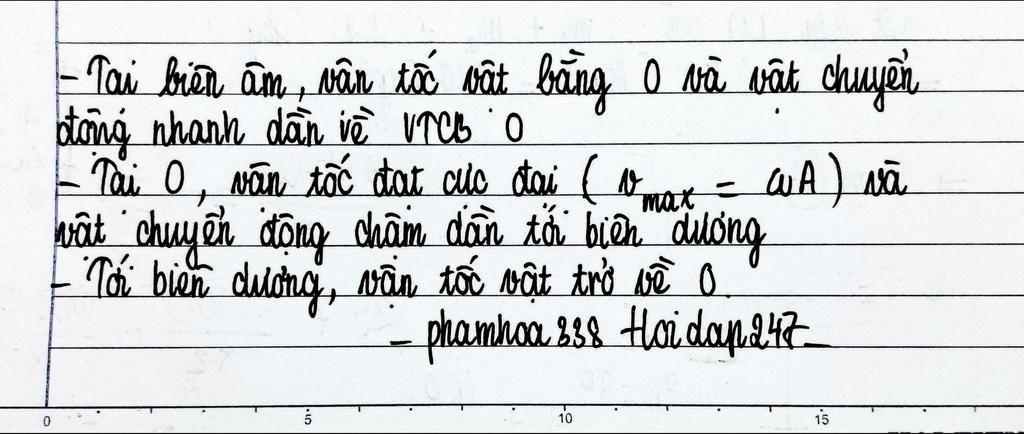 - Tại biên âm, vận tốc vật bằng 0 và vật chuyển
động nhanh dần về VTCB O
- Tại O, vận tốc đạt cực đại ( v max = ωA ) và
vật chuyển động chậm dần tới biên dương
- Tới biên dương, vận tốc vật trở về 0.
- phamhoa338 Hoidap247 -
0 5 10 15